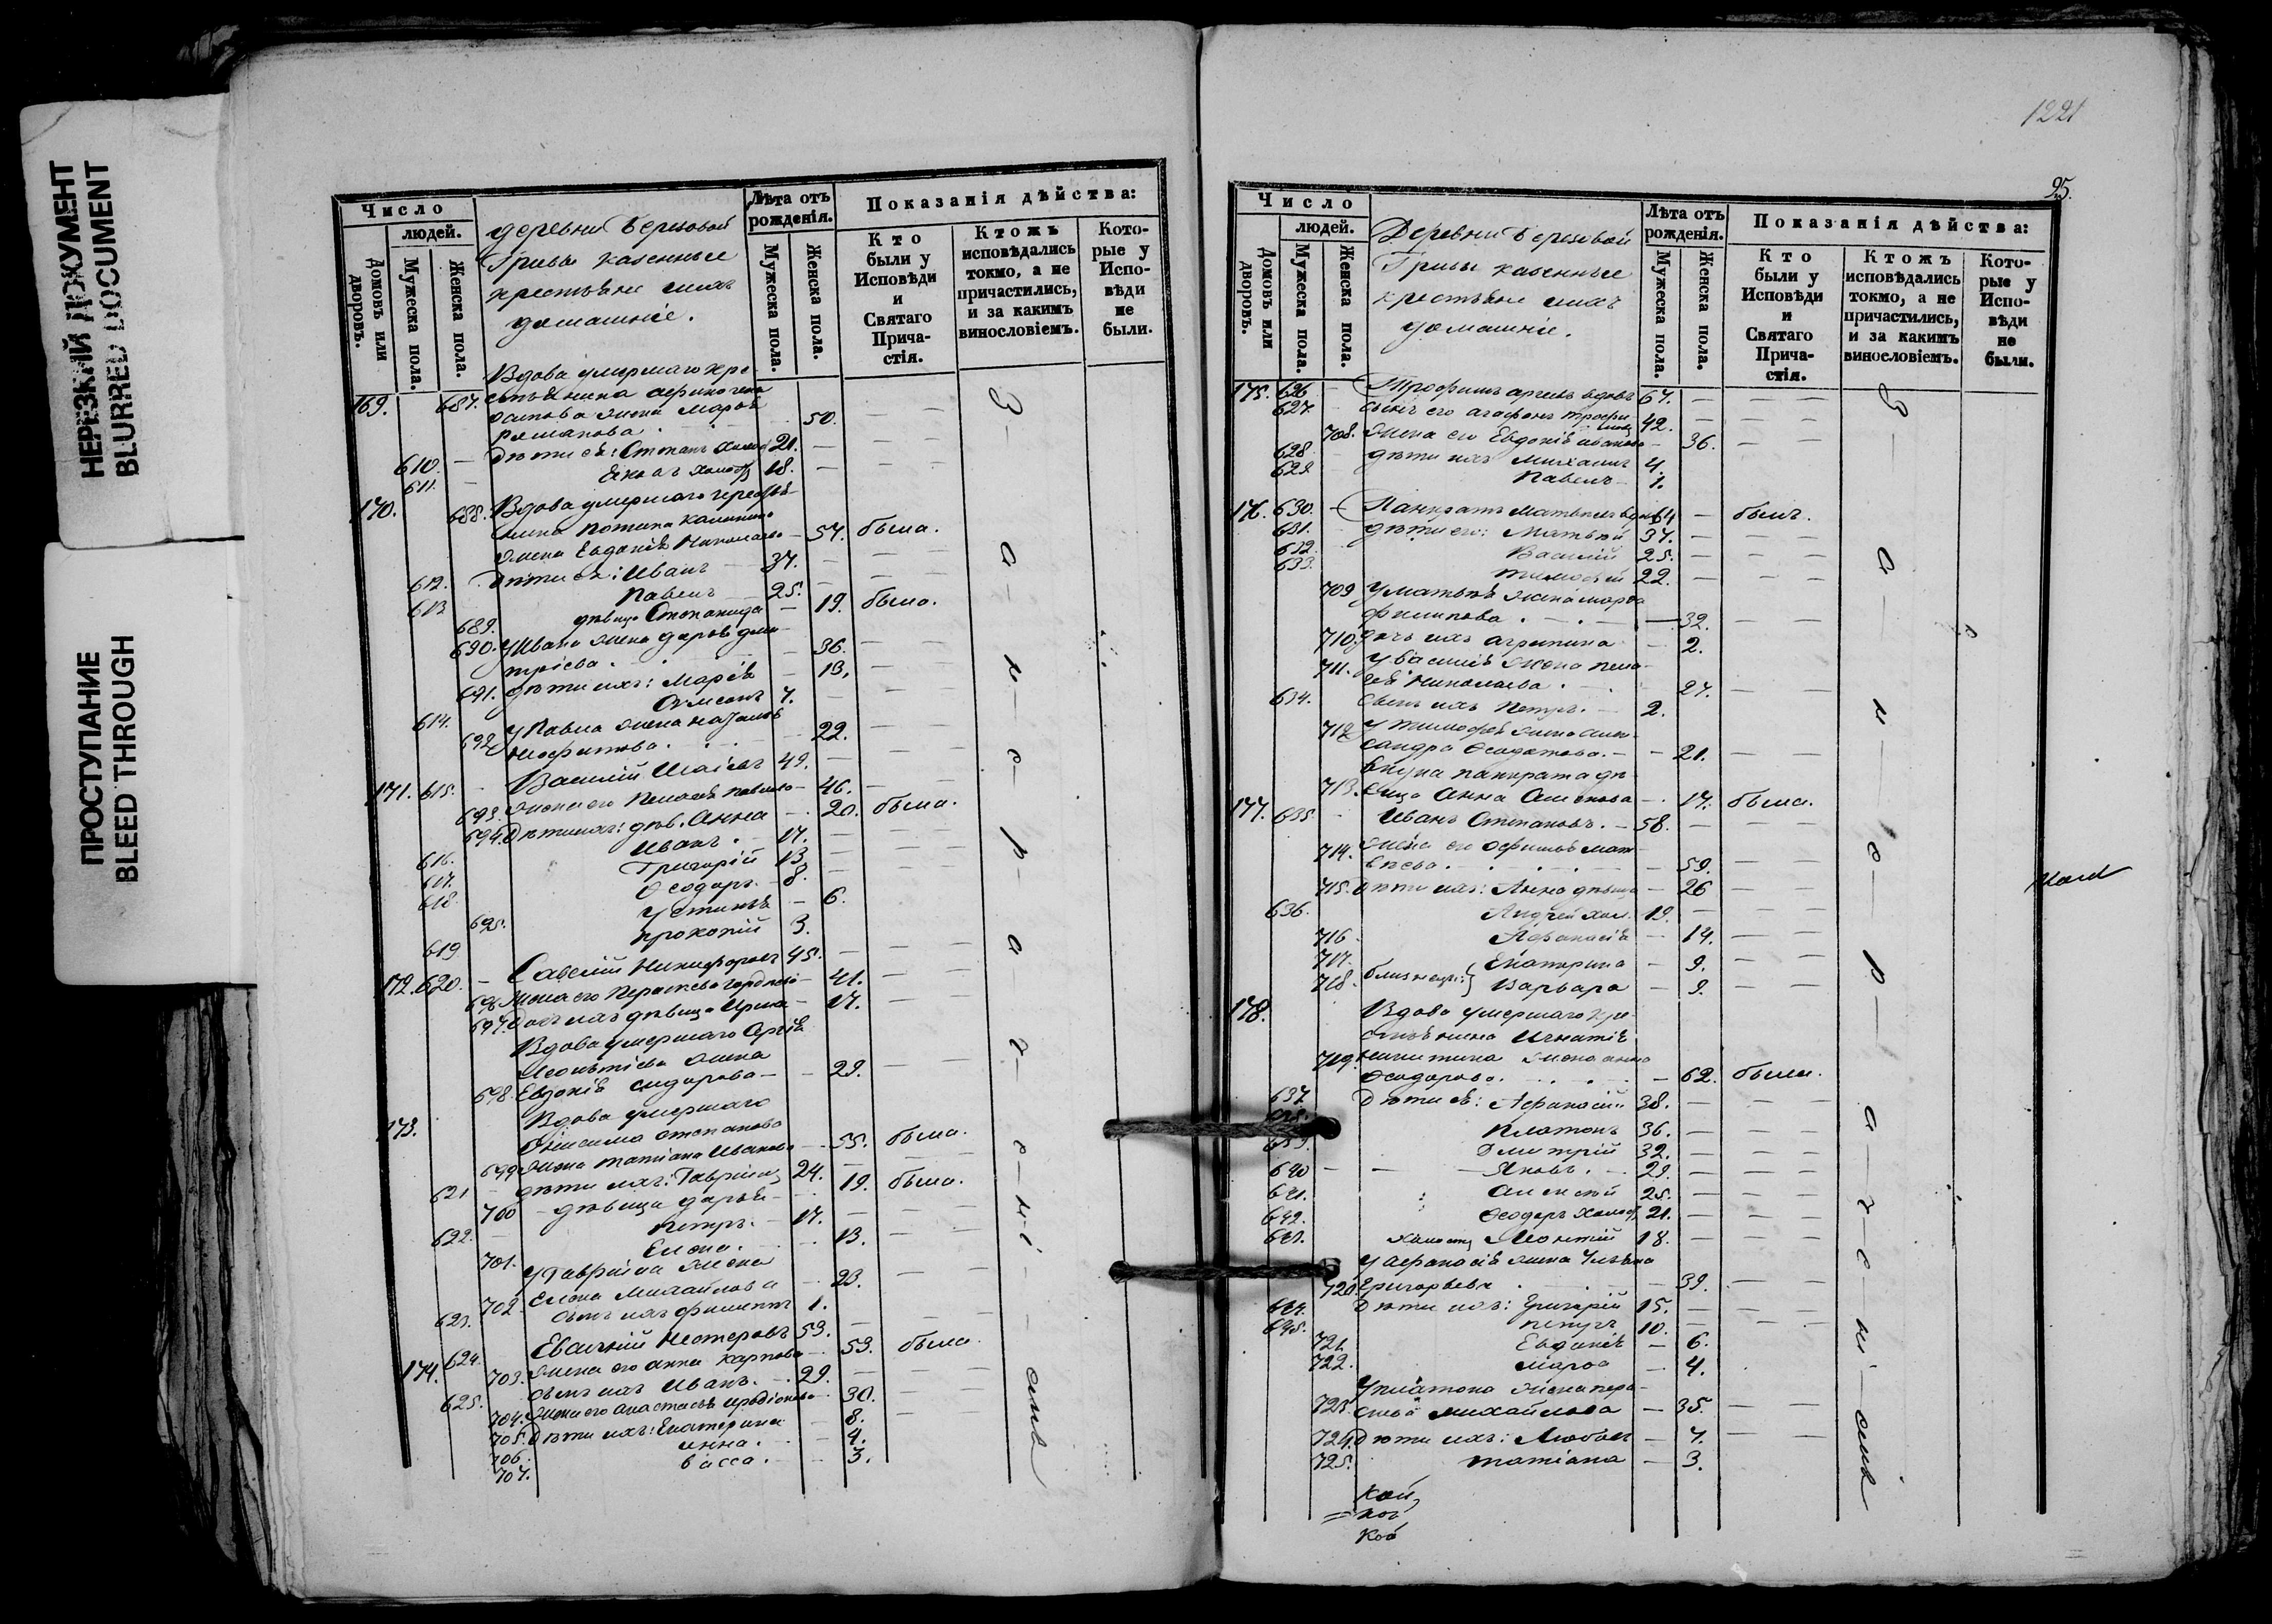 НЕРЕЗКИЙ ДОКУМЕНТ
BLURRED DOCUMENT
ПРОСТУПАНИЕ
BLEED THROUGH
Число
людей.
Домовъ или дворовъ.
Мужеска пола.
Женска пола.
деревни Березовой
Гривы казенные
крестьяне и ихъ
домашніе.
Лѣта отъ рожденія.
Мужеска пола.
Женска пола.
Показанія дѣйства:
Кто были у Исповѣди и Святаго Причастія.
Ктожъ исповѣдались токмо, а не причастились, и за какимъ винословіемъ.
Которые у Исповѣди не были.
Вдова умершаго кре-
169. 687. стьянина
жена Марѳа
Романова. 50.
610. — Дѣти ея: Степанъ холост 21. —
611. — Яковъ холост 18. —
170. 688. Вдова умершаго крестья-
нина Потапа Калинина
жена Евдокія Николаева — 57. была.
612. Дѣти ея: Иванъ — 37. —
613 Павелъ — 25. —
689. дѣвица Степанида — 19. была.
690. У Ивана жена Дарья Дми-
тріева. — 36. —
691. Дѣти ихъ: Марія — 13. —
614. Симеонъ 7. —
692. У Павла жена Наталія
22. —
171. 615. Василій Исаіевъ 49. —
693. Жена его Пелагея Павлова — 46. —
694. Дѣти ихъ: дѣв. Анна — 20. была.
616. Иванъ. — 17. —
617. Григорій 13. —
618. Ѳеодоръ. — 8. —
695. Устинья — 6.
619 Прокопій 3.
172. 620. — Савелій Никифоровъ 45. —
696. Жена его Параскева Гордѣева — 41. —
697. Дочь ихъ дѣвица Ирина — 17. —
Вдова умершаго Сергія
Леонтіева жена
698. Евдокія Сидорова — 29. —
173. Вдова умершаго
Онисима Степанова
699. жена Татіана Иванова — 55. была.
621 дѣти ихъ: Гавріилъ 24. —
700 дѣвица Дарья — 19. была.
622. Петръ. — 17. —
701. Елена. — 13. —
У Гавріила жена
702. Елена Михайлова — 23. —
623. Сынъ ихъ Филиппъ 1.
174. 624. Евдокимъ Несторовъ 59. —
703. Жена его Анна Карпова — 53. была
625. Сынъ ихъ Иванъ. — 29. —
704. Жена его Анастасія Иродіонова — 30. —
705. Дѣти ихъ: Екатерина — 8. —
706. Анна. — 4.
707. Васса. — 3.
З — а — н — е — р — а — д — е — н і — емъ
1221
25.
Число
людей.
Домовъ или дворовъ.
Мужеска пола.
Женска пола.
Деревни Березовой
Гривы казенные
крестьяне и ихъ
домашніе.
Лѣта отъ рожденія.
Мужеска пола.
Женска пола.
Показанія дѣйства:
Кто были у Исповѣди и Святаго Причастія.
Ктожъ исповѣдались токмо, а не причастились, и за какимъ винословіемъ.
Которые у Исповѣди не были.
175. 626 — Трофимъ вдовъ 67. —
627. сынъ его Агафонъ Трофи-
мовъ 42. —
708. жена его Евдокія Иванова — 36. —
628 дѣти ихъ Михаилъ 4.
629. Павелъ — 1.
176. 630. — Панкратъ Матвѣевъ вдовъ 64 — былъ.
631. дѣти его: Матвѣй 37. —
632. Василій 25. —
633. Тимоѳей 22. —
709 У Матвѣя жена Марѳа
Филипова. — 32. —
710. дочь ихъ Агрипина — 2.
711. У Василія жена Пела-
гея Николаева. — 27. —
634. Сынъ ихъ Петръ. — 2.
712. У Тимоѳея жена Алек-
сандра Ѳеодотова. — 21. —
Внука Панкрата дѣ-
713. вица Анна Семенова — 17. была.
177. 635. Иванъ Степановъ. — 58. —
714. Жена его Мат-
вѣева. — 59. —
715. Дѣти ихъ: Анна дѣвица — 26 —
636. Андрей хол. 19. —
716 Аѳанасія — 14. —
717. Екатерина — 9. —
718. близнецы: } Варвара — 9. —
178. Вдова умершаго кре-
стьянина Игнатія
719. Никитина жена Анна
Ѳеодорова. — 62. была.
637. Дѣти ея: Аѳанасій 38. —
638. Платонъ 36. —
639. Дмитрій 32. —
640 — Яковъ. — 29. —
641. Алексѣй 25. —
642. Ѳеодоръ холост 21. —
643. холост Леонтій 18. —
У Аѳанасія жена Ульяна
720. Григорьева — 39. —
644. Дѣти ихъ: Григорій 15. —
645. Петръ 10. —
721. Евдокія — 6.
722. Марѳа — 4.
У Платона жена Пара-
723. скева Михайлова — 35. —
724. Дѣти ихъ: Любовь — 7. —
725. Татіана — 3.